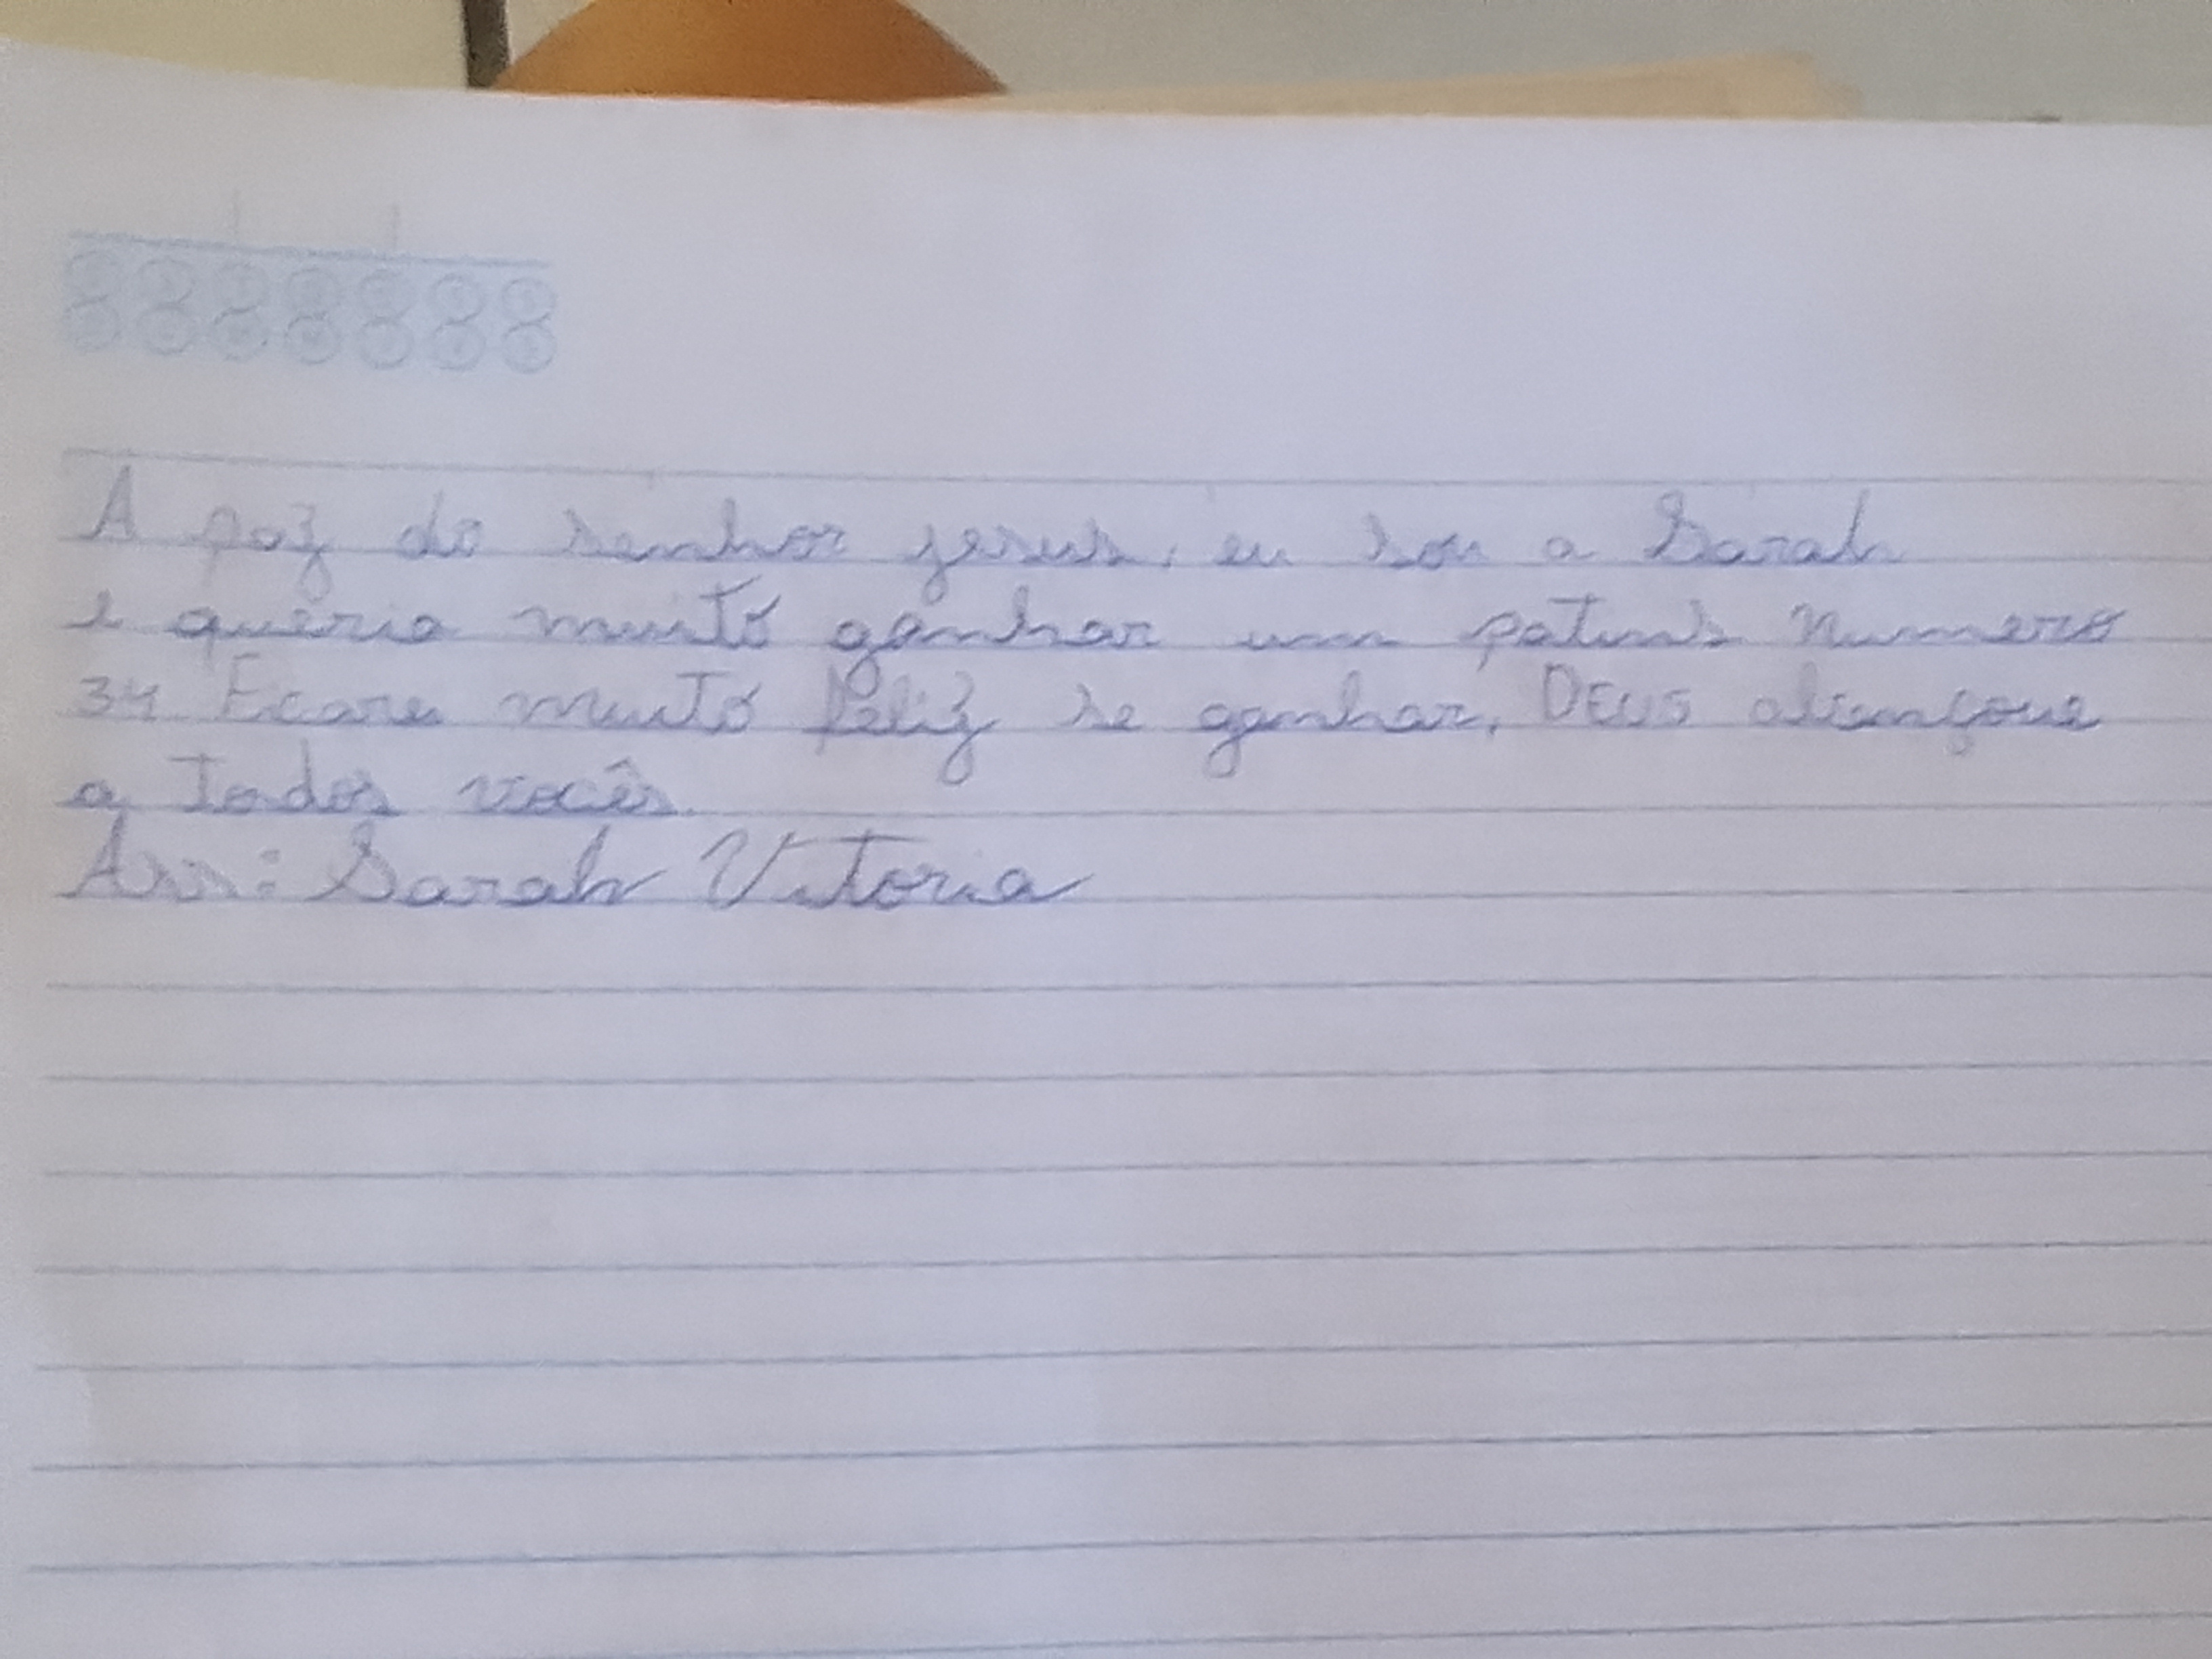 A paz do senhor jesus, eu sou a Sarah
e queria muito ganhar um patins numero
34 Ficarei muito feliz se ganhar, DEUS abençoue
a Todos vocês.
Ass: Sarah Vitoria